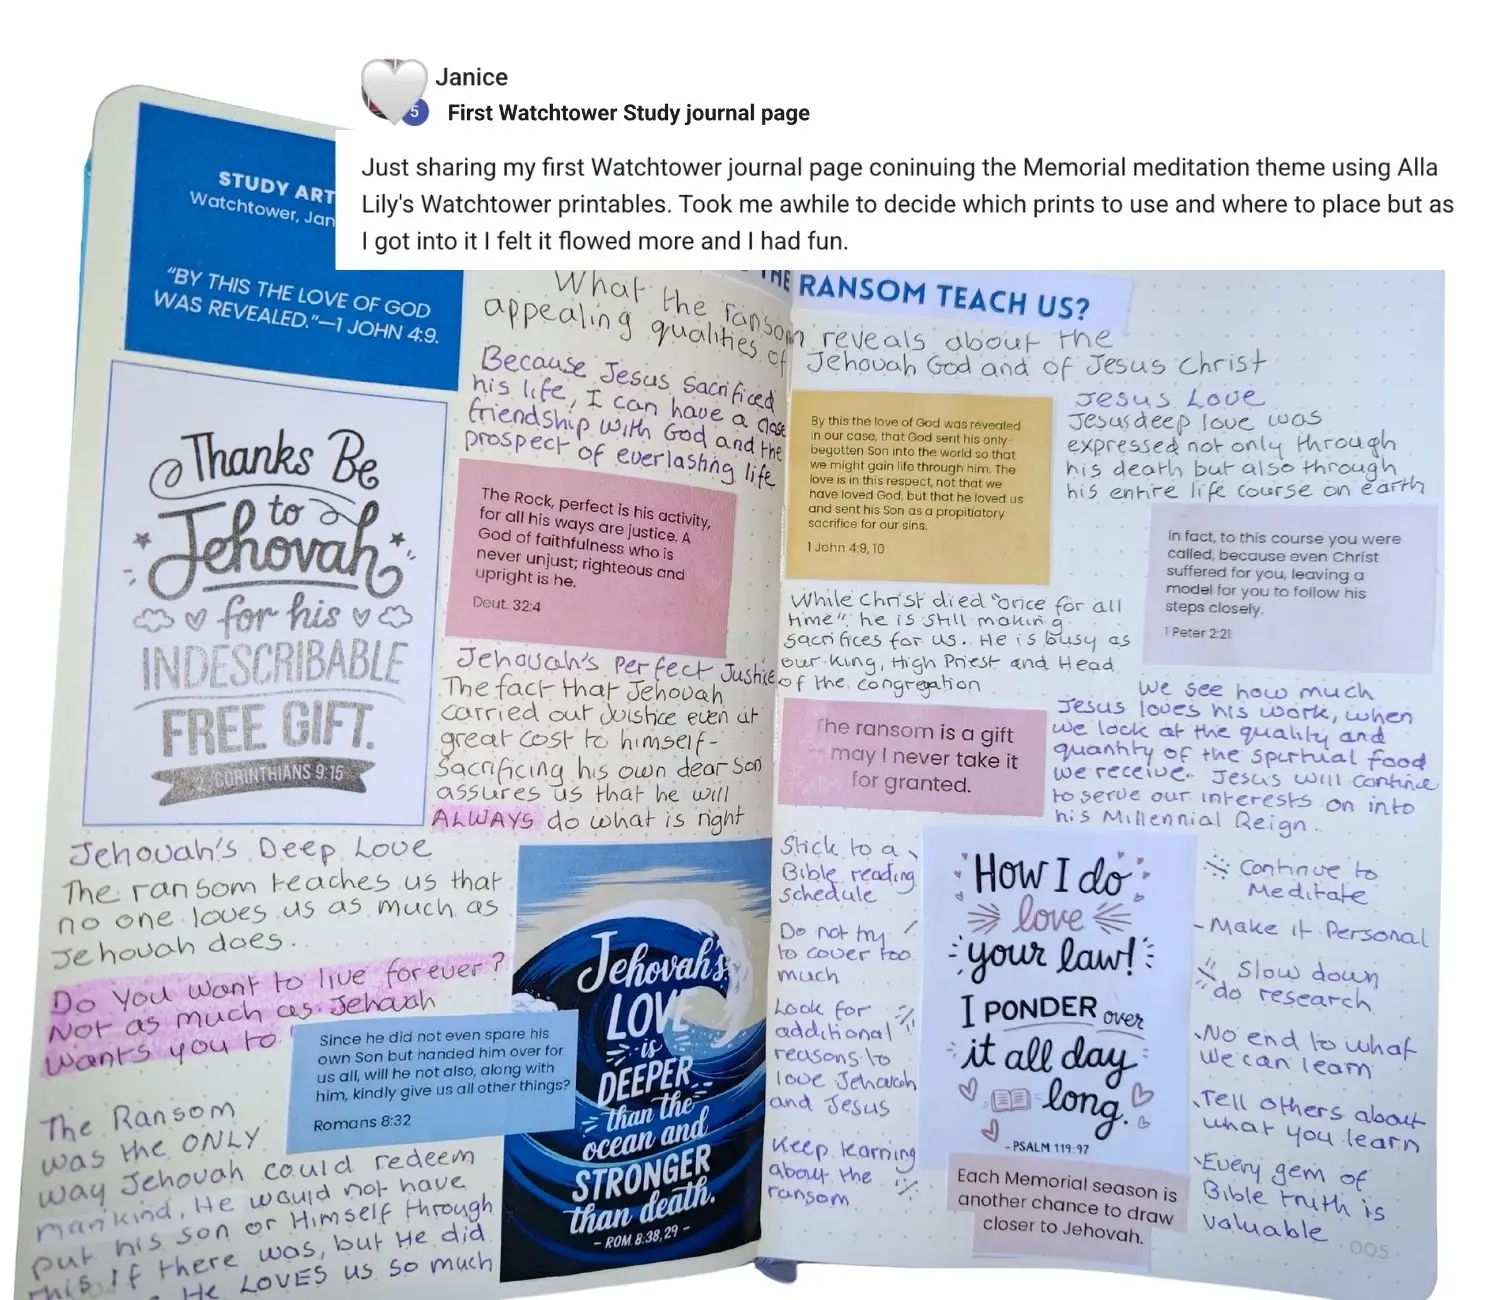 Janice
5
First Watchtower Study journal page
Just sharing my first Watchtower journal page coninuing the Memorial meditation theme using Alla
Lily's Watchtower printables. Took me awhile to decide which prints to use and where to place but as
I got into it I felt it flowed more and I had fun.
STUDY ART
Watchtower, Jan
"BY THIS THE LOVE OF GOD
WAS REVEALED."—1 JOHN 4:9.
THE RANSOM TEACH US?
What the ransom reveals about the
appealing qualities of Jehovah God and of Jesus Christ
Thanks Be
to
Jehovah
for his
INDESCRIBABLE
FREE GIFT.
CORINTHIANS 9:15
Because Jesus sacrificed
his life, I can have a close
friendship with God and the
prospect of everlasting life
The Rock, perfect is his activity,
for all his ways are justice. A
God of faithfulness who is
never unjust; righteous and
upright is he.
Deut. 32:4
Jehovah's Perfect Justice
The fact that Jehovah
carried out Justice even at
great cost to himself-
Sacrificing his own dear son
assures us that he will
ALWAYS do what is right
Jehovah's Deep Love
The ransom teaches us that
no one loves us as much as
Jehovah does.
Do you want to live forever?
Not as much as Jehovah
wants you to
Since he did not even spare his
own Son but handed him over for
us all, will he not also, along with
him, kindly give us all other things?
Romans 8:32
The Ransom
was the ONLY
way Jehovah could redeem
mankind. He would not have
put his son or Himself through
this if there was, but He did
He LOVES us so much
Jehovah's
LOVE
is
DEEPER
than the
ocean and
STRONGER
than death.
- ROM 8:38, 29 -
By this the love of God was revealed
in our case, that God sent his only-
begotten Son into the world so that
we might gain life through him. The
love is in this respect, not that we
have loved God, but that he loved us
and sent his Son as a propitiatory
sacrifice for our sins.
1 John 4:9, 10
Jesus Love
Jesus deep love was
expressed not only through
his death but also through
his entire life course on earth
In fact, to this course you were
called, because even Christ
suffered for you, leaving a
model for you to follow his
steps closely.
1 Peter 2:21
While Christ died "once for all
time" he is still making
sacrifices for us.. He is busy as
our King, High Priest and Head
of the congregation
The ransom is a gift
— may I never take it
for granted.
We see how much
Jesus loves his work, when
we look at the quality and
quantity of the spirtual food
we receive. Jesus will continue
to serve our interests on into
his Millennial Reign.
Stick to a
Bible reading
schedule
Do not try
to cover too
much
Look for
additional
reasons to
love Jehovah
and Jesus
Keep learning
about the
ransom
How I do
love
your law!
I PONDER over
it all day
long.
-PSALM 119:97
Each Memorial season is
another chance to draw
closer to Jehovah.
Continue to
Meditate
- Make it Personal
Slow down
do research
No end to what
we can learn
Tell others about
what you learn
Every gem of
Bible truth is
valuable
005